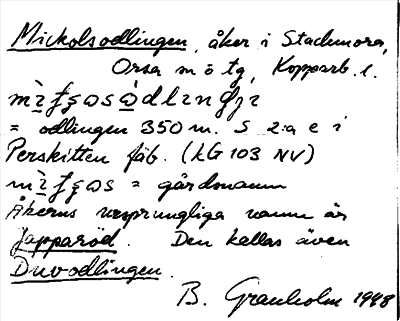 Mickolsodlingen, åker i Stackmora,
Orsa m ö tg, Kopparb. l.
= odlingen 350 m. S 2:a e i
Perskitten fäb. (kG 103 NV)
= gårdsnamn
Åkerns ursprungliga namn är
Japparöd. Den kallas även
Duvodlingen.
B. Granholm 1998